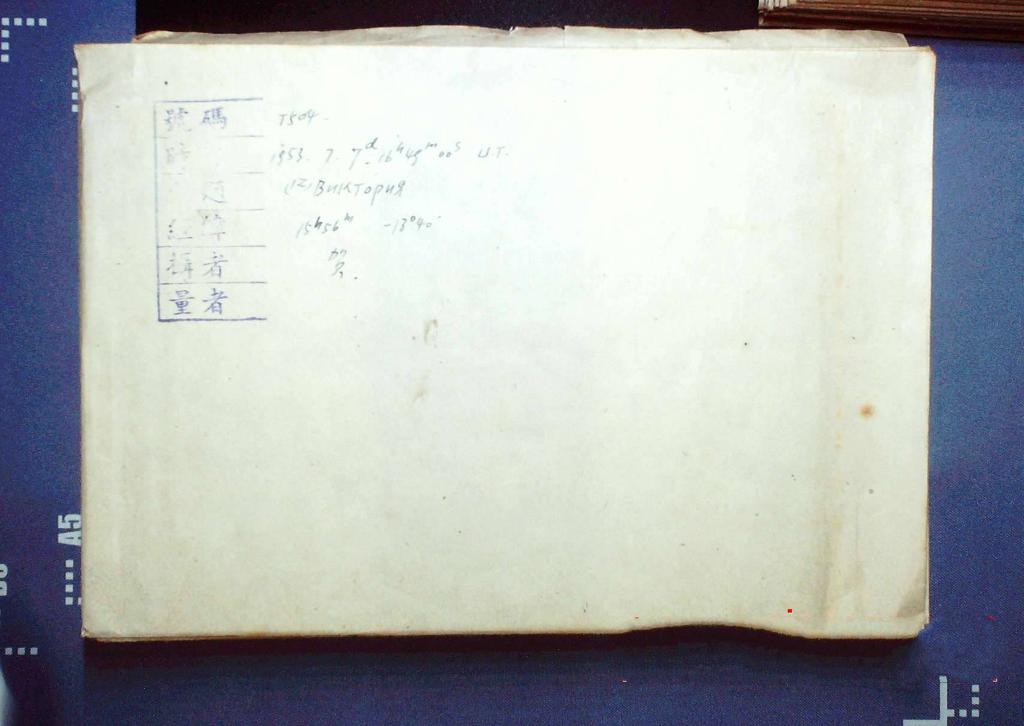 號碼 T504
時 1953. 7. 7ᵈ 16ʰ 49ᵐ 00ˢ U.T.
(12) Виктория
紅 15ʰ56ᵐ -13°40′
攝者 賀
量者
A5